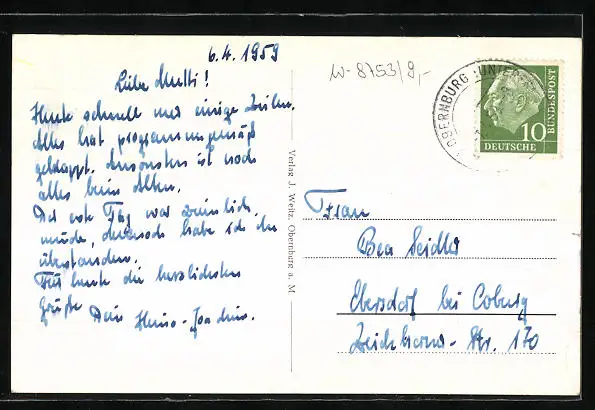 6.4.1959
Liebe Mutti!
Heute schnell nur einige Zeilen.
Alles hat programmgemäß
geklappt. Ansonsten ist noch
alles beim Alten.
Der erste Tag war ziemlich
müde, dennoch habe ich ihn
überstanden.
Für heute die herzlichsten
Grüße
Dein Heino-Joachim.
Verlag J. Weitz, Obernburg a. M
W-8753/9,-
OBERNBURG (UNTER
BUNDESPOST
10
DEUTSCHE
Frau
Bea Seidler
Ebersdorf bei Coburg
Str. 170